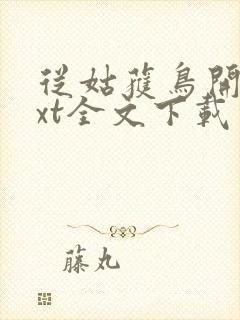 從姑蓷鳥開
xt全文下載
藤丸